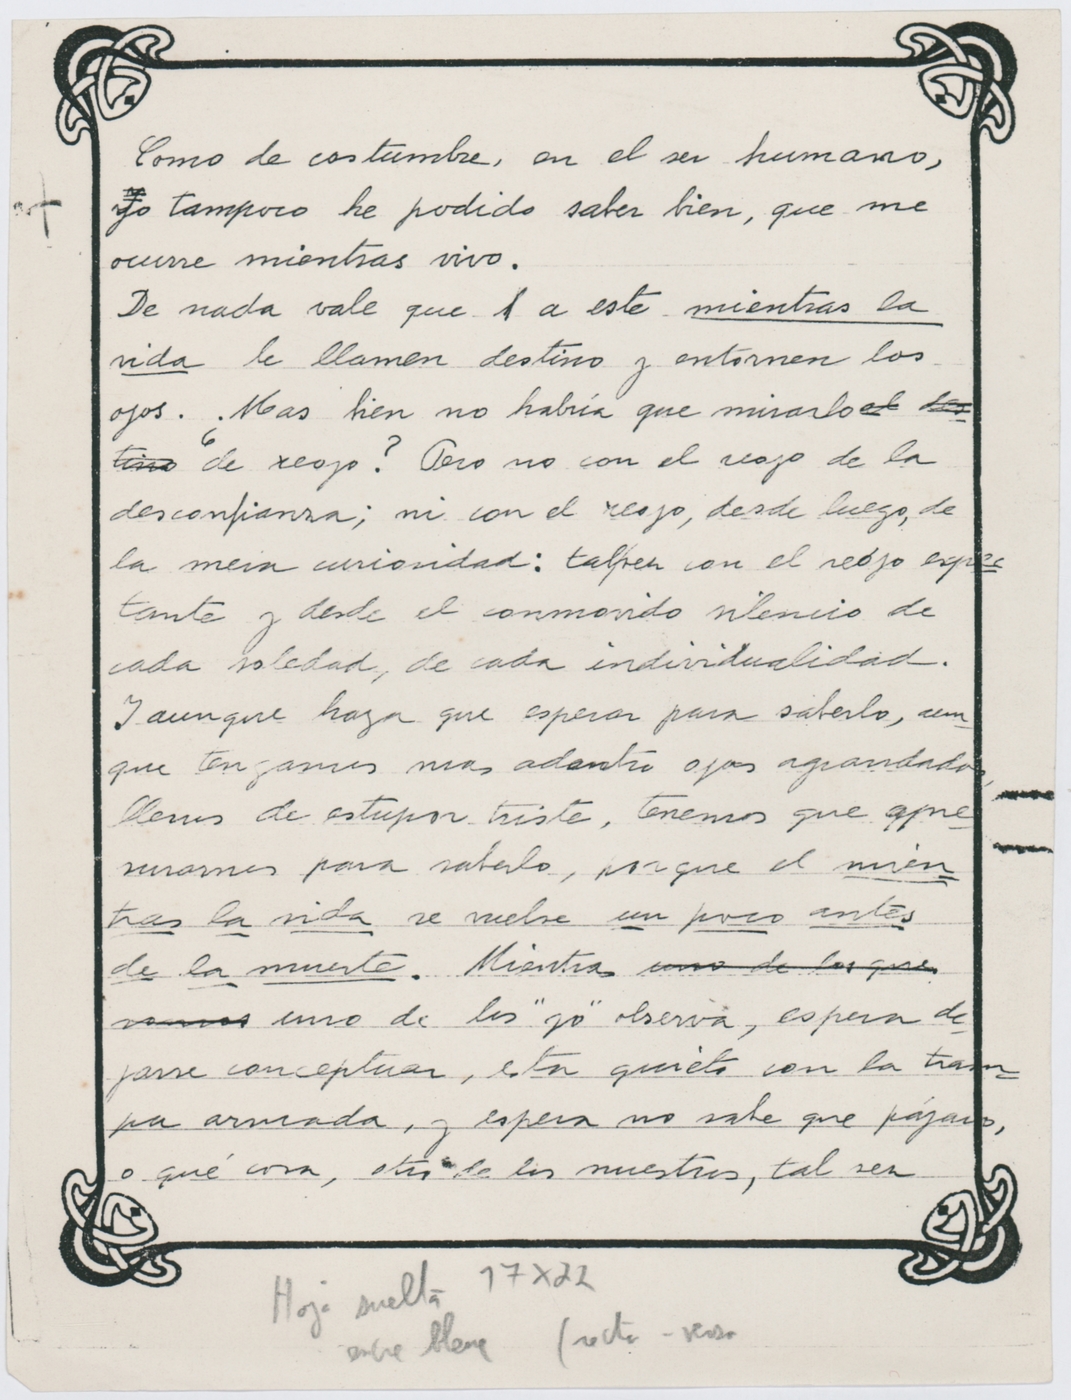 Como de costumbre, en el ser humano,
yo tampoco he podido saber bien, que me
ocurre mientras vivo.
De nada vale que a este mientras la
vida le llamen destino y entornen los
ojos. ¿Mas bien no habría que mirarlo el des
tino de reojo? Pero no con el reojo de la
desconfianza; ni con el reojo, desde luego, de
la mera curiosidad: talvez con el reojo expec
tante y desde el conmovido silencio de
cada soledad, de cada individualidad.
Y aunque haya que esperar para saberlo, aun
que tengamos mas adentro ojos agrandados,
llenos de estupor triste, tenemos que apre
surarnos para saberlo, porque el mien
tras la vida se vuelve un poco antes
de la muerte. Mientras uno de los que
vamos uno de los "yo" observa, espera de
jarse conceptuar, esta quieto con la tram
pa armada, y espera no sabe que pájaro,
o qué cosa, otro de los nuestros, tal ser
Hoja suelta 17X22
(recto - verso